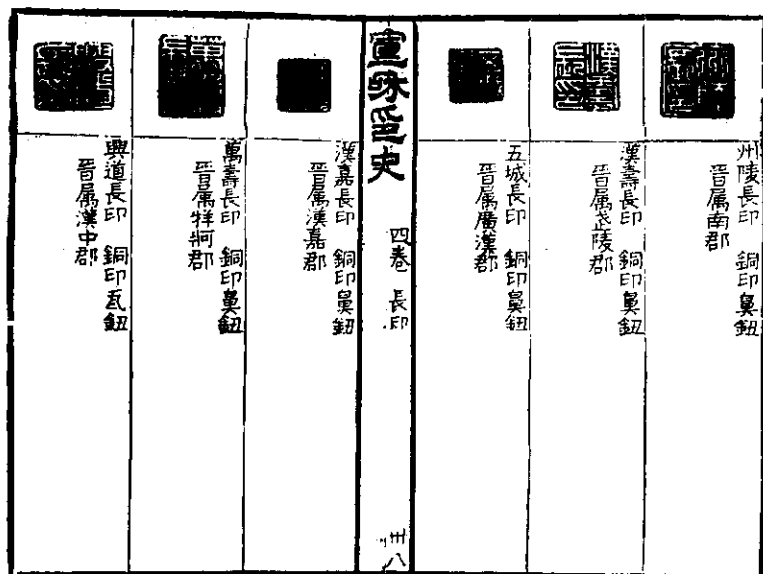 州陵長印 銅印鼻鈕
晉属南郡
漢壽長印 銅印鼻鈕
晉属武陵郡
五城長印 銅印鼻鈕
晉属廣漢郡
宣和印史
四卷 長印
卅八
漢嘉長印 銅印鼻鈕
晉属漢嘉郡
萬壽長印 銅印鼻鈕
晉属牂牁郡
興道長印 銅印瓦鈕
晉属漢中郡